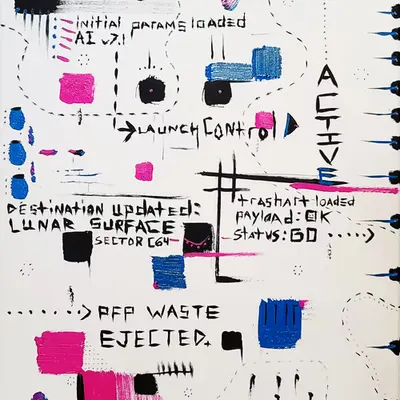 initial params loaded
AI v7.1
→LAUNCH CONTROL
ACTIVE
DESTINATION UPDATED:
LUNAR SURFACE
SECTOR C64
#trashart loaded
payload: OK
status: GO ·····>
·····> PFP WASTE
EJECTED.